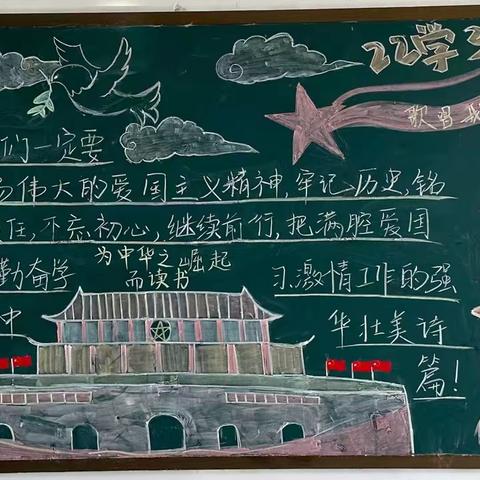 22学
歌唱
们一定要
伟大的爱国主义精神,牢记历史,铭
在,不忘初心,继续前行,把满腔爱国
勤奋学
为中华之崛起
而读书
习.激情工作的强
中
华壮美诗
篇!